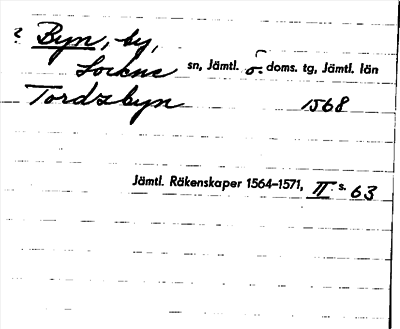 ? Byn, by,
Lockne sn, Jämtl. ö. doms. tg, Jämtl. län
Tordzbyn 1568
Jämtl. Räkenskaper 1564–1571, II s. 63